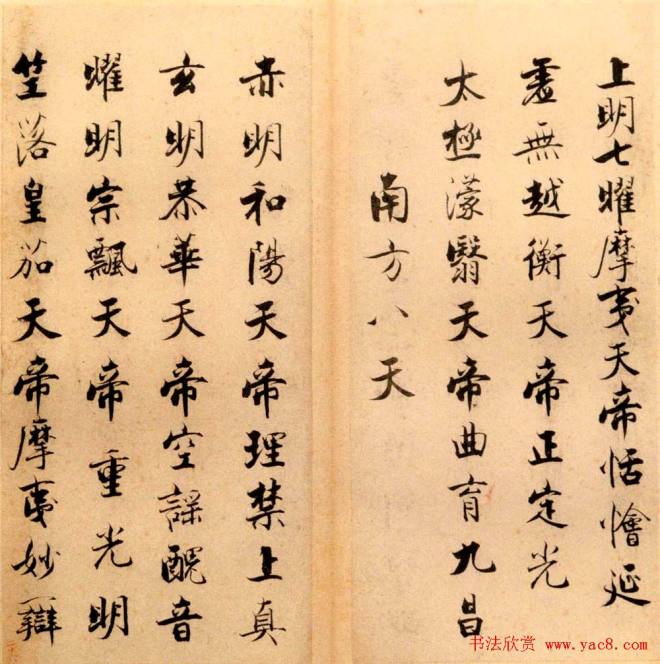 上明七曜摩夷天帝恬懀延
虛無越衡天帝正定光
太極濛翳天帝曲育九昌
南方八天
赤明和陽天帝理禁上真
玄明恭華天帝空謠醜音
曜明宗飄天帝重光明
竺落皇茄天帝摩夷妙辯
书法欣赏 www.yac8.com